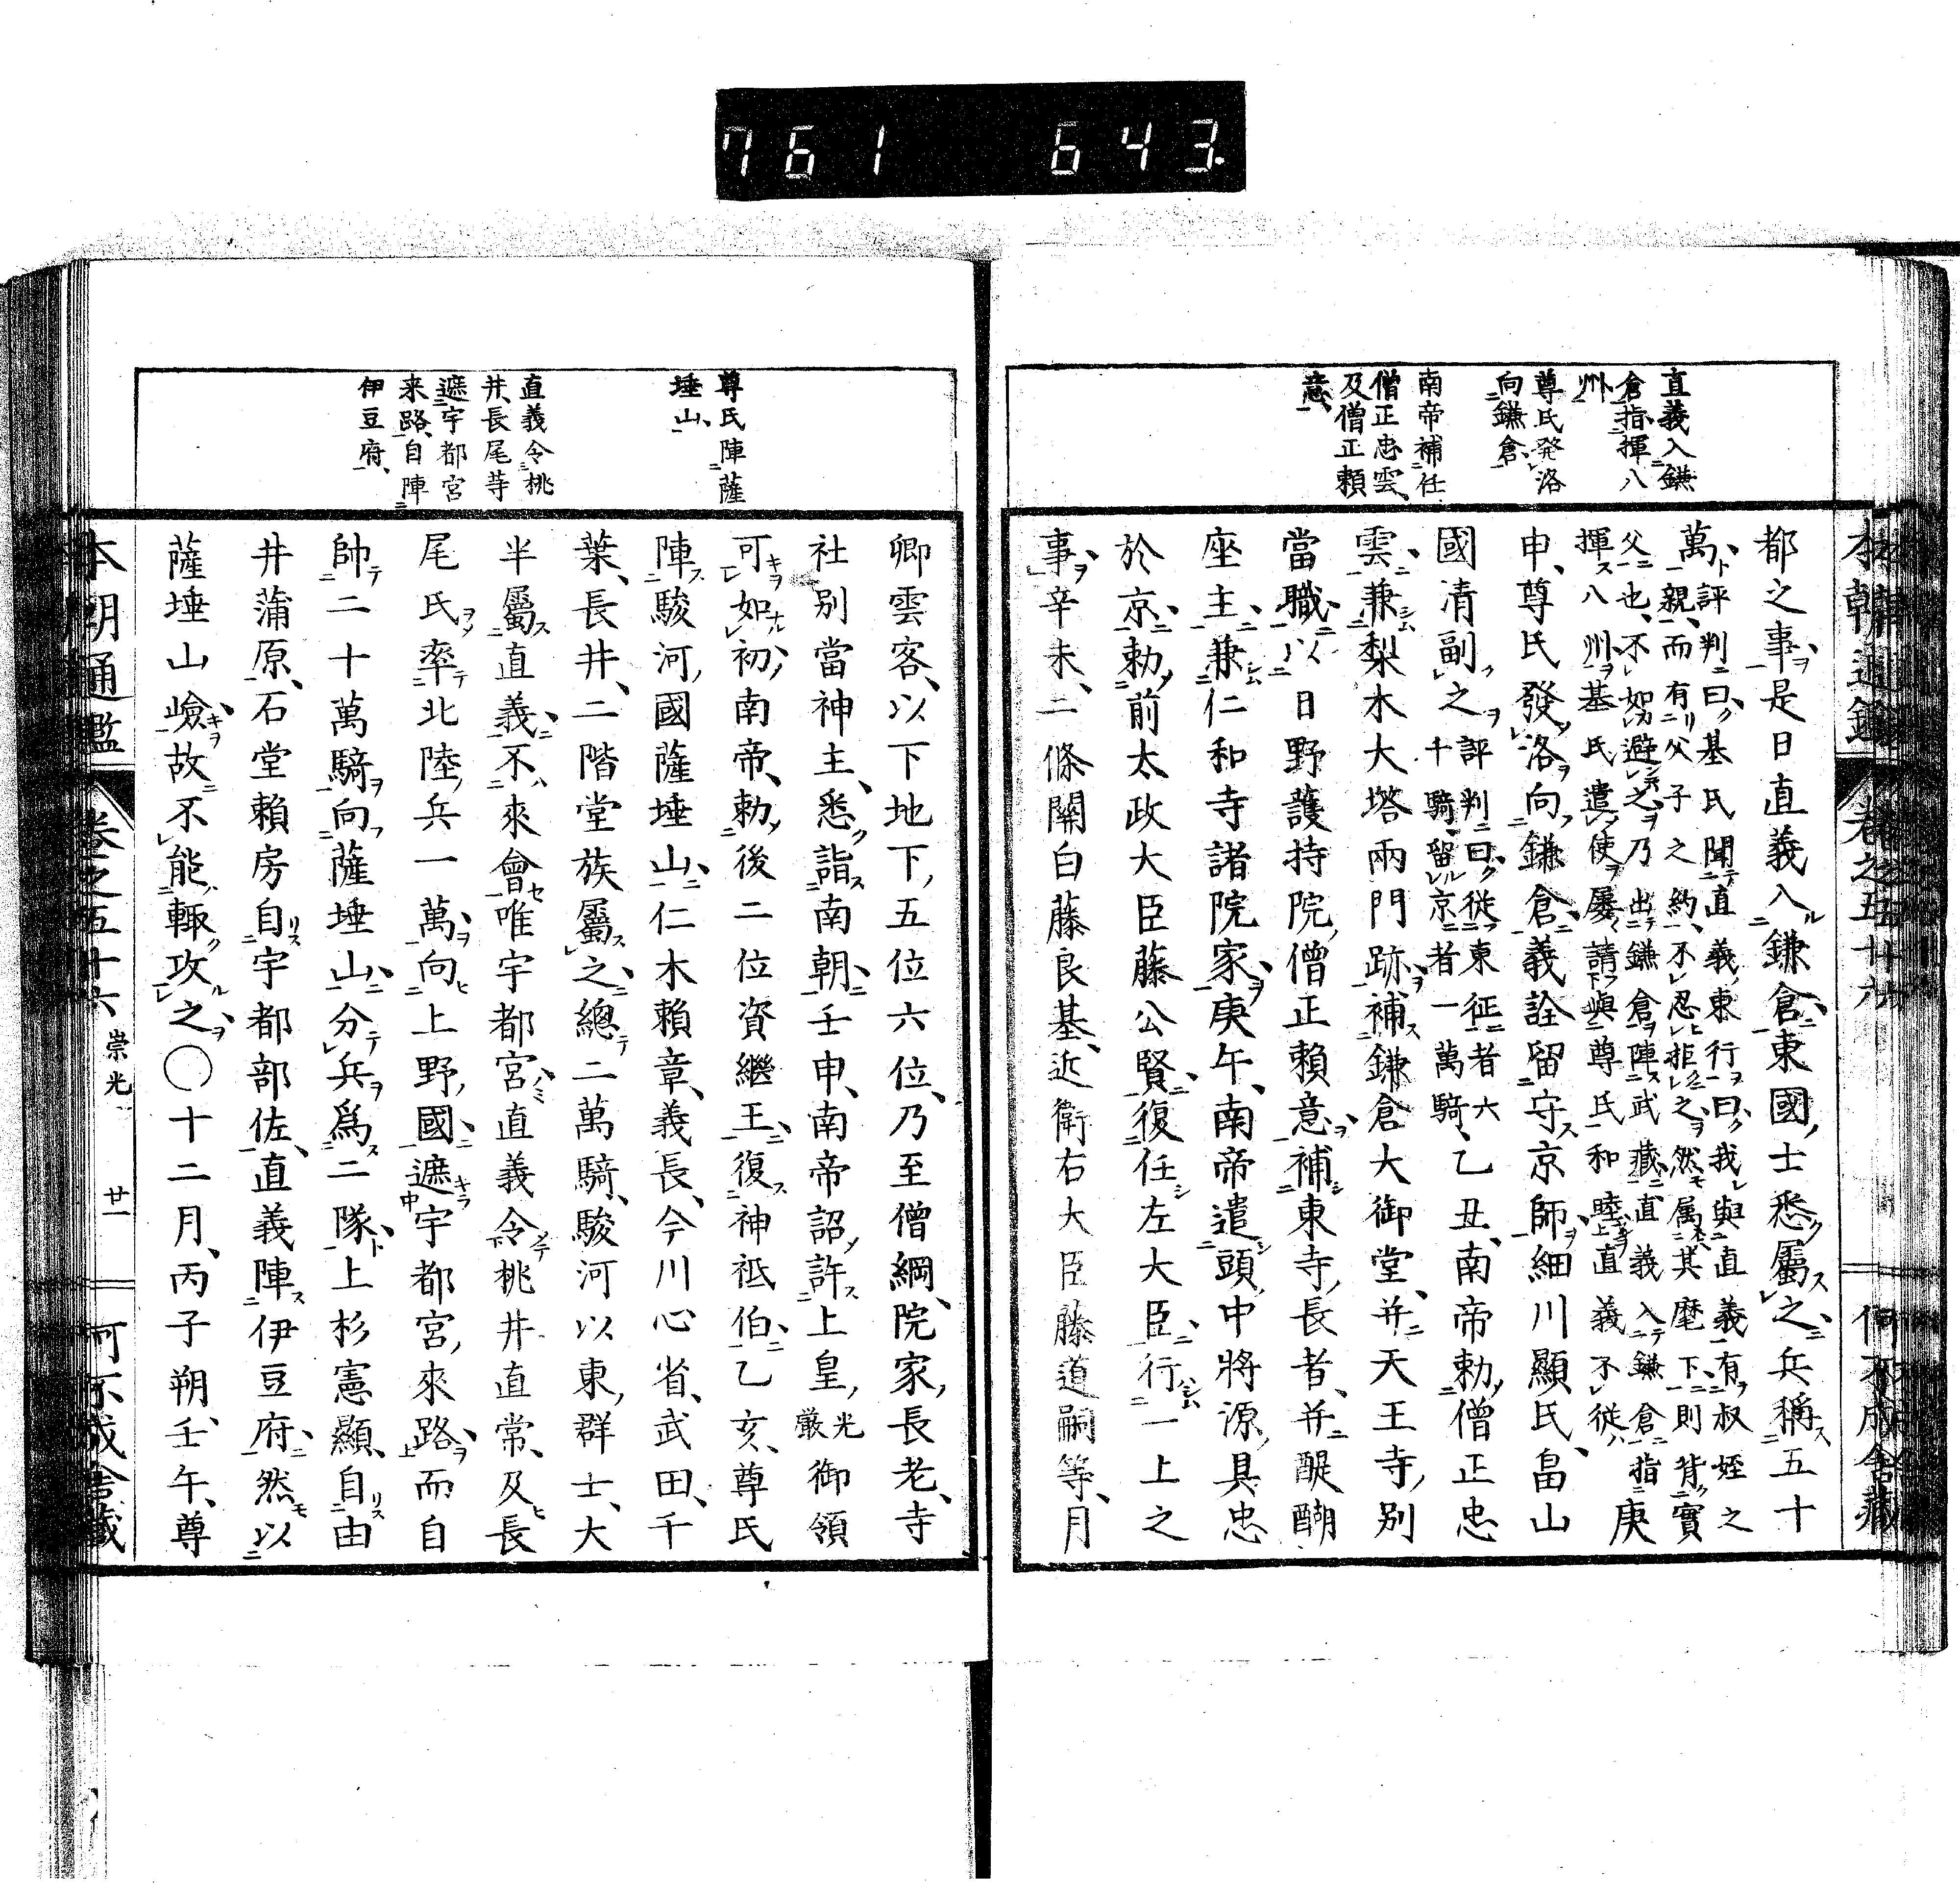 761 643.
直義入鎌
倉指揮八
州
尊氏発洛
向鎌倉
南帝補任
僧正忠雲
及僧正頼
意
都之事是日直義入鎌倉東國士悉屬之兵稱五十
萬評判曰基氏聞直義東行曰我與直義有叔姪之
親而有父子之約不忍拒之然属其麾下則背實
父也不如避之乃出鎌倉陣武藏直義入鎌倉指
揮八州基氏遣使屡請與尊氏和睦直義不従庚
申尊氏發洛向鎌倉義詮留守京師細川顯氏畠山
國清副之評判曰従東征者六
千騎留京者一萬騎乙丑南帝勅僧正忠
雲兼梨木大塔兩門跡補鎌倉大御堂并天王寺別
當職以日野護持院僧正賴意補東寺長者并醍醐
座主兼仁和寺諸院家庚午南帝遣頭中將源具忠
於京勅前太政大臣藤公賢復任左大臣行一上之
事辛未二條關白藤良基近衛右大臣藤道嗣等月
本朝通鑑 卷之五十六
尊氏陣薩
埵山
直義令桃
井長尾䓁
遮宇都宮
来路自陣
伊豆府
卿雲客以下地下五位六位乃至僧綱院家長老寺
社別當神主悉詣南朝壬申南帝詔許上皇光
嚴御領
可如初南帝勅後二位資繼王復神祇伯乙亥尊氏
陣駿河國薩埵山仁木賴章義長今川心省武田千
葉長井二階堂族屬之總二萬騎駿河以東群士大
半屬直義不來會唯宇都宮直義令桃井直常及長
尾氏率北陸兵一萬向上野國遮宇都宮來路而自
帥二十萬騎向薩埵山分兵爲二隊上杉憲顯自由
井蒲原石堂賴房自宇都部佐直義陣伊豆府然以
薩埵山嶮故不能輙攻之〇十二月丙子朔壬午尊
本朝通鑑 卷之五十六 崇光 廿一